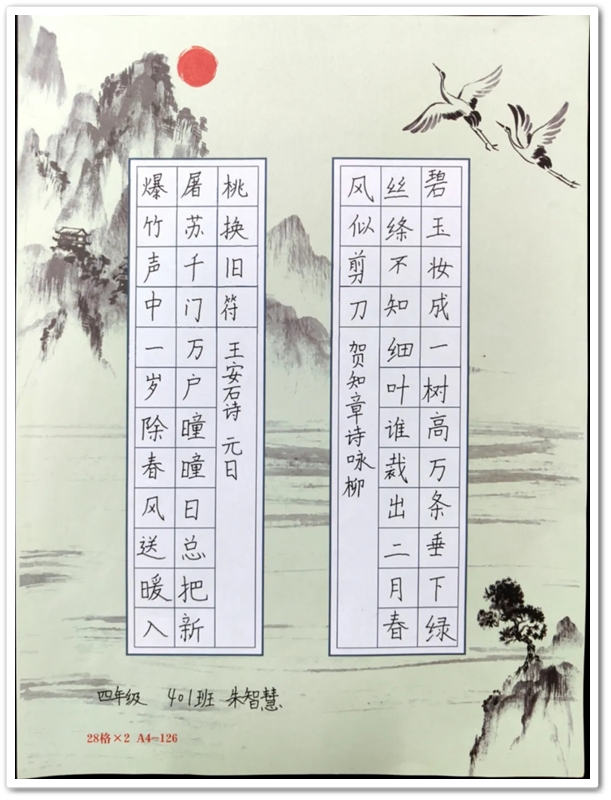 碧玉妆成一树高万条垂下绿
丝绦不知细叶谁裁出二月春
风似剪刀 贺知章诗咏柳
爆竹声中一岁除春风送暖入
屠苏千门万户曈曈日总把新
桃换旧符 王安石诗 元日
四年级 401班 朱智慧
28格×2 A4-126